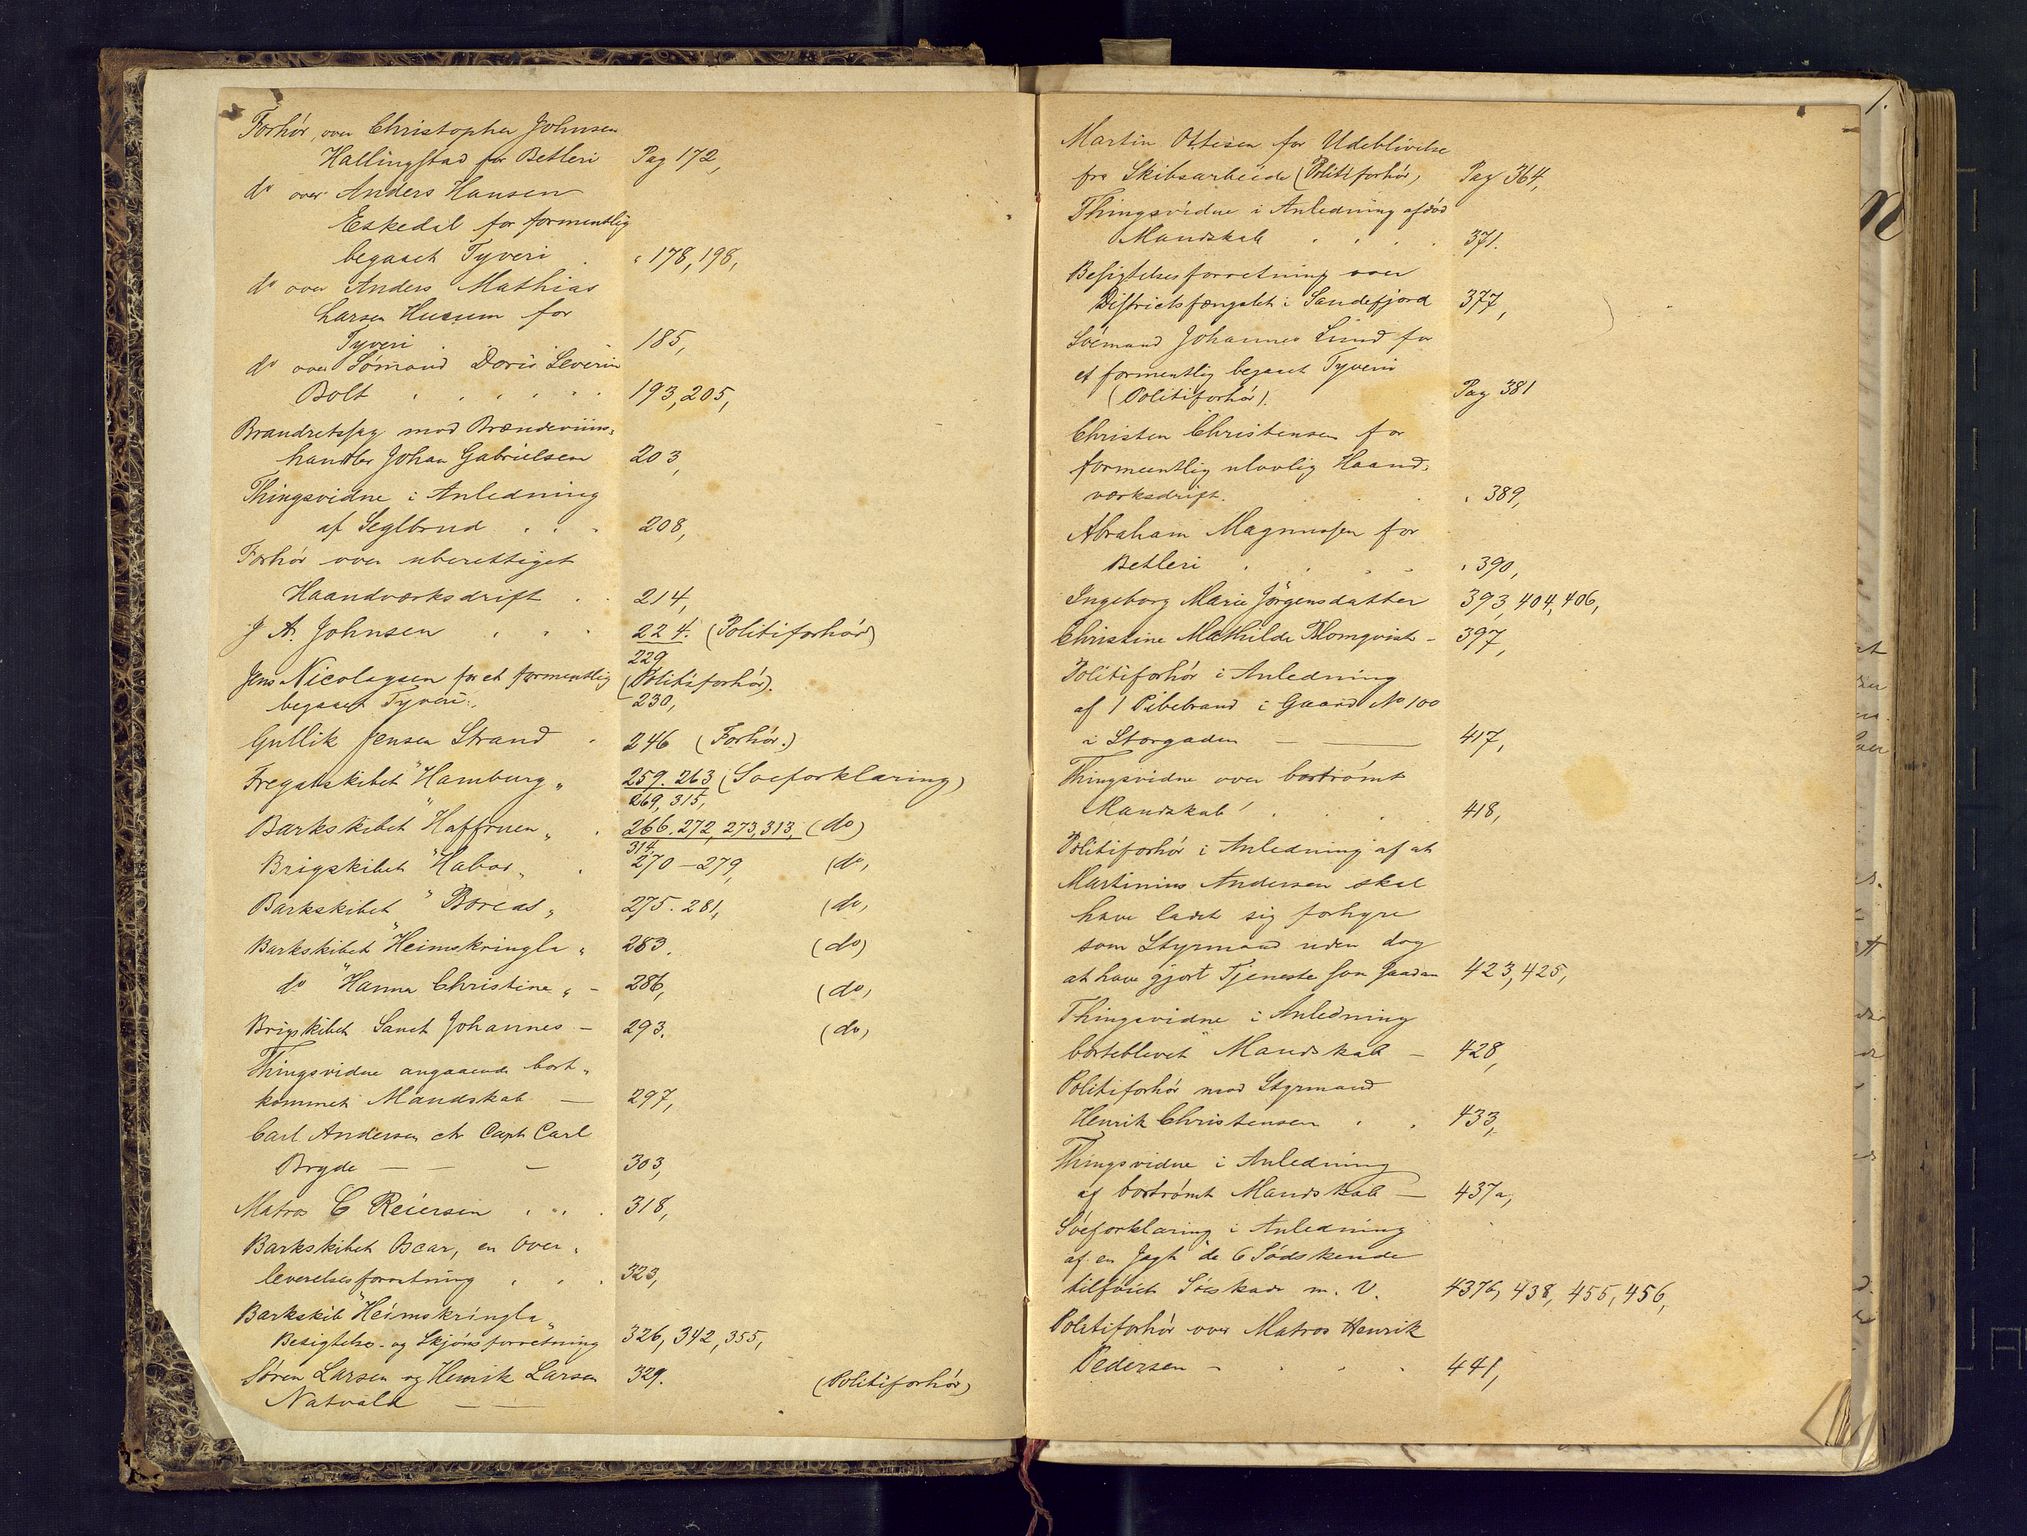 Forhør, over Christopher Johnsen
Hallingstad for Betleri Pag 172,
do over Anders Hansen
Eskedal for formentlig
begaaet Tyveri " 178, 198,
do over Anders Mathias
Larsen Husum for
Tyveri 185,
do over Sømand Doris Severin
Bolt 193, 205,
Brandretssag mod Brændeviins-
handler Johan Gabrielsen 203,
Thingsvidne i Anledning
af Seglbrud 208,
Forhør over uberettiget
Haandværksdrift 214,
J A. Johnsen 224. (Politiforhør)
229
Jens Nicolaysen for et formentlig (Politiforhør).
begaaet Tyveri 230,
Gullik Jensen Strand 246 (Forhør.)
Fregatskibet "Hamburg" 259. 263 (Søeforklaring)
269, 315,
Barkskibet "Haffruen" 266. 272, 273, 313, (do)
314
Brigskibet "Habor" 270 – 279, (do,
Barkskibet "Boreas" 275. 281, (do,
Barkskibet "Heimskringla" 283. (do)
do "Hanna Christine" – 286, (do,
Brigskibet Sanct Johannes – 293. (do,
Thingsvidne angaaende bort-
kommet Mandskab — 297,
Carl Andersen ctr Capt Carl
Bryde — — – 303,
Matros C Reiersen 318,
Barkskibet Oscar, en Over-
leverelsesforretning 323,
Barkskib "Heimskringla"
Besigtelse- og Skjønsforretning 326, 342, 355,
Søren Larsen og Henrik Larsen 329. (Politiforhør)
Natvald — —
1.
Martin Ottesen for Udeblivelse
fra Skibsarbeide (Politiforhør, Pag 364,
Thingsvidne i Anledning afdød
Mandskab 371.
Besigtelsesforretning over
Districtsfængslet i Sandefjord 377,
Søemand Johannes Lund for
et formentlig begaaet Tyveri
(Politiforhør). Pag 381
Christen Christensen for
formentlig ulovlig Haand-
værksdrift. " 389,
Abraham Magnussen for
Betleri " 390,
Ingeborg Marie Jørgensdatter 393, 404, 406,
Christine Mathilde Blomqvist – 397,
Politiforhør i Anledning
af 1 Pibebrand i Gaard No 100
i Storgaden — — 417,
Thingsvidne over bortrømt
Mandskab 418,
Politiforhør i Anledning af at
Martinius Andersen skal
have ladet sig forhyre
som Styrmand uden dog
at have gjort Tjeneste som saadan 423, 425,
Thingsvidne i Anledning
borteblevet Mandskab – 428,
Politiforhør mod Styrmand
Henrik Christensen 433,
Thingsvidne i Anledning
af bortrømt Mandskab — 437a,
Søeforklaring i Anledning
af en Jagt "de 6 Sødskende
tilføiet Søeskade m. V. 437b, 438, 455, 456,
Politiforhør over Matros Henrik
Pedersen – 441,